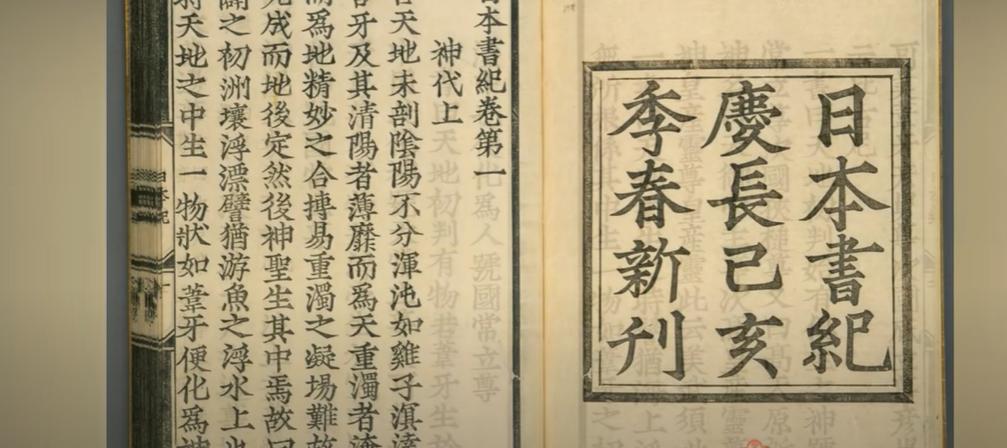 日本書紀
慶長己亥
季春新刊
日本書紀卷第一
神代上
天地未剖陰陽不分渾沌如雞子溟
牙及其清陽者薄靡而爲天重濁者
而爲地精妙之合摶易重濁之凝場難
成而地後定然後神聖生其中焉故曰
闢之初洲壤浮漂譬猶游魚之浮水上也
天地之中生一物狀如葦牙便化爲神